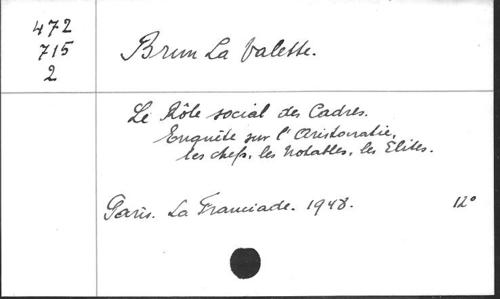 472
715
2
Brun La Valette.
Le Rôle social des Cadres.
Enquête sur l'Aristocratie,
les chefs, les Notables, les Elites.
Paris. La Franciade. 1948. 12°